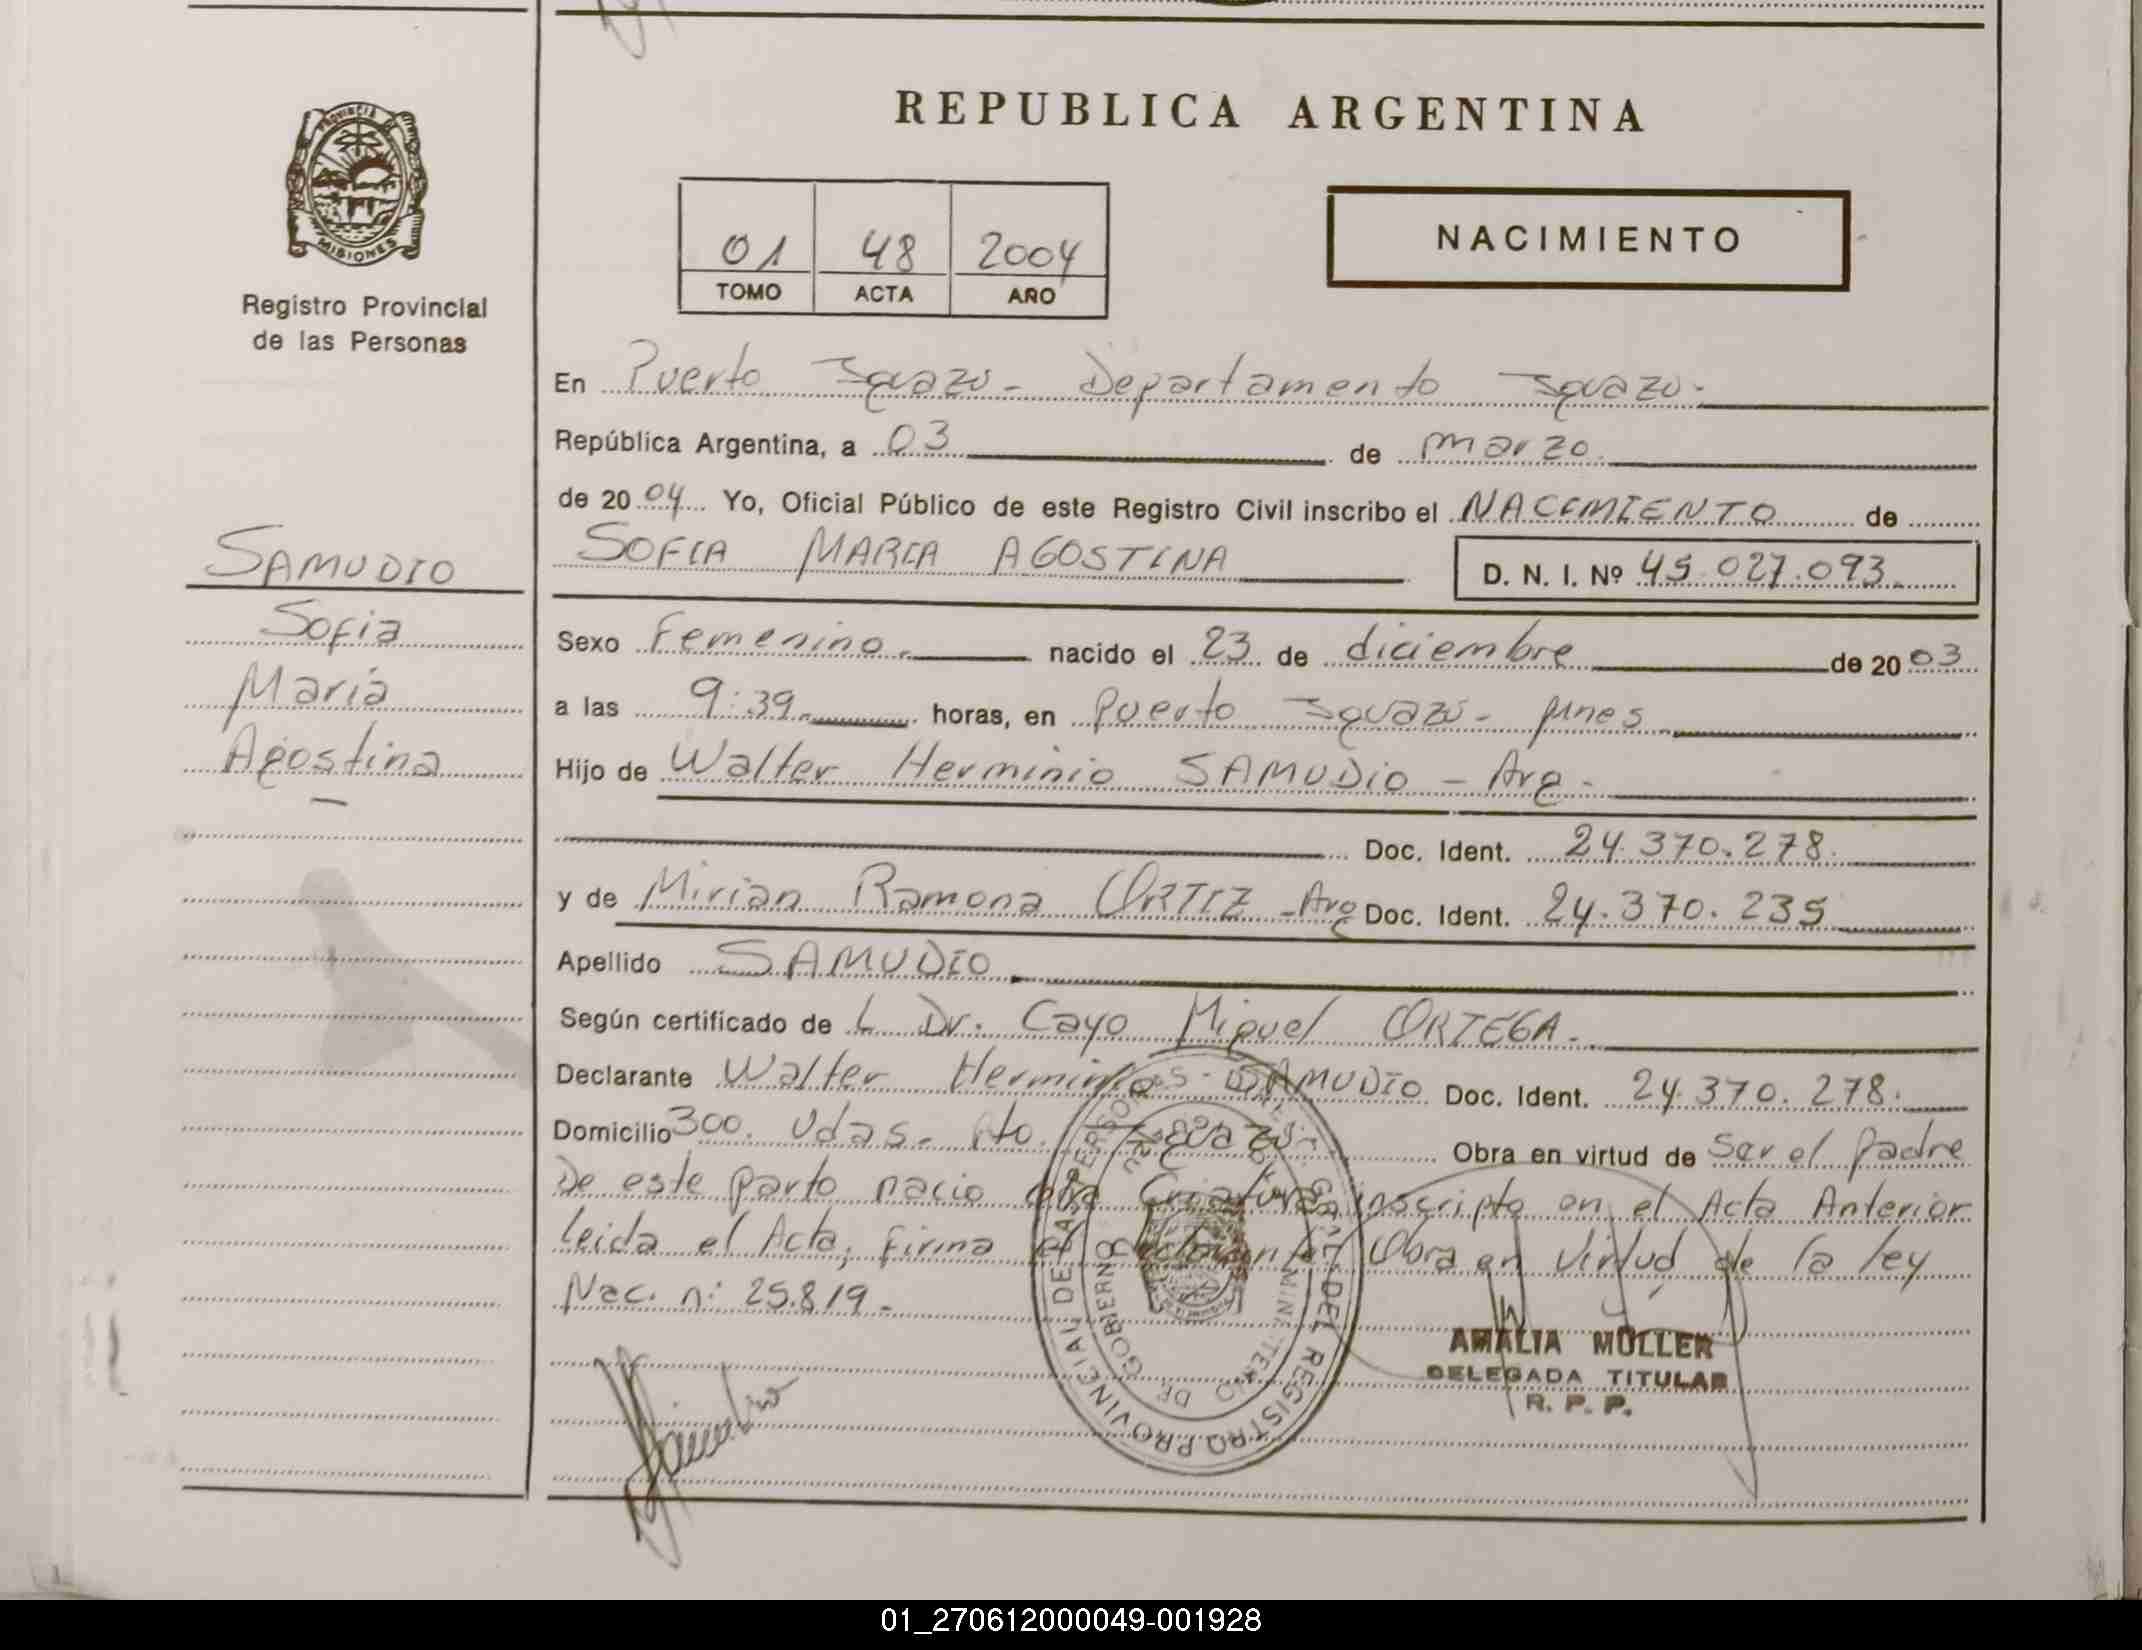 REPUBLICA ARGENTINA
PROVINCIA DE
MISIONES
Registro Provincial
de las Personas
01 48 2004
TOMO ACTA AÑO
NACIMIENTO
En Puerto Iguazú - Departamento Iguazú.
República Argentina, a 03 de marzo
de 2004 Yo, Oficial Público de este Registro Civil inscribo el NACIMIENTO de
SOFIA MARIA AGOSTINA D. N. I. Nº 45.027.093
SAMUDIO
Sofia
Maria
Agostina
Sexo Femenino. nacido el 23 de diciembre de 2003
a las 9:39 horas, en Puerto Iguazú - Mnes
Hijo de Walter Herminio SAMUDIO - Arg.
Doc. Ident. 24.370.278.
y de Mirian Ramona ORTIZ - Arg Doc. Ident. 24.370.235
Apellido SAMUDIO
Según certificado de L Dr. Cayo Miguel ORTEGA.
Declarante Walter Herminio SAMUDIO Doc. Ident. 24.370.278.
Domicilio 300. Vdas. Pto. Iguazú. Obra en virtud de ser el padre
De este parto nacio otra Criatura inscripta en el Acta Anterior
leida el Acta, firma el Declarante. Obra en virtud de la ley
Nac. n: 25.819.
AMALIA MÜLLER
DELEGADA TITULAR
R. P. P.
Samudio
01_270612000049-001928